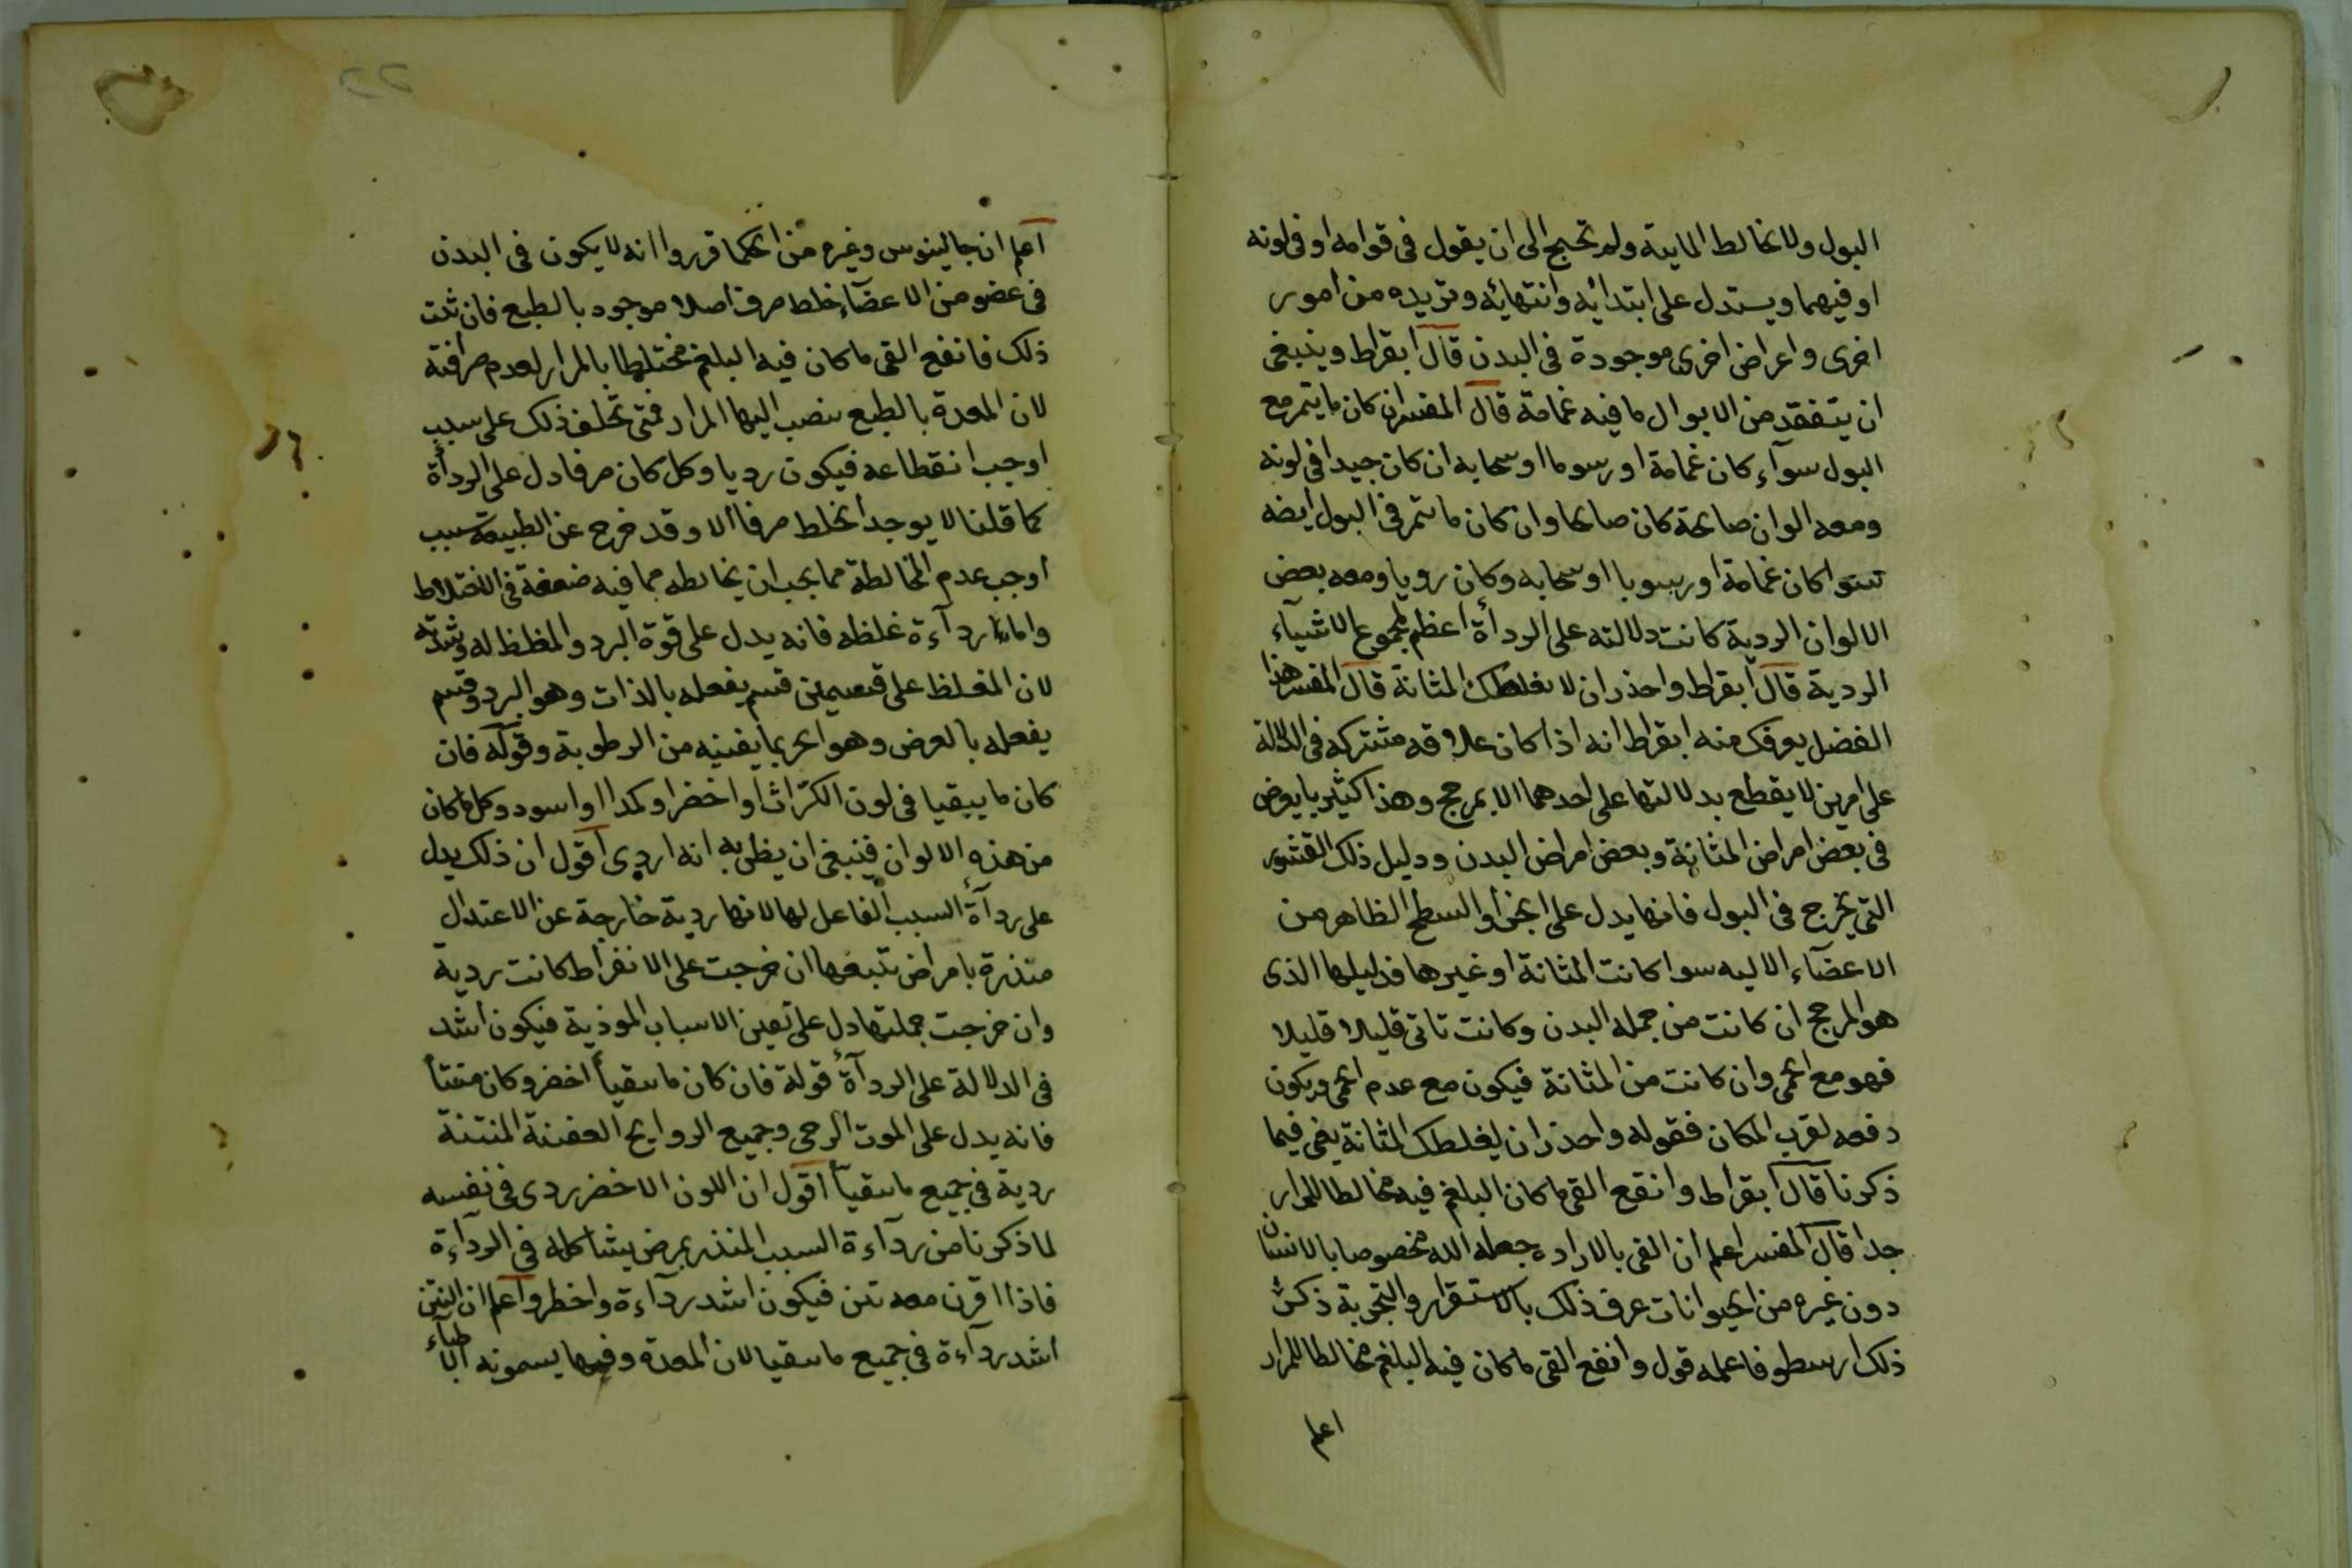 البول ولا يخالط المايية ولم تحتج الى ان يقول فى قوامه او فى لونه
او فيهما ويستدل على ابتدائه وانتهائه وتزيده من امور
اخرى واعراض اخرى موجودة فى البدن قال ابقراط وينبغى
ان يتفقد من الابوال ما فيه غمامة قال المفسر ان كان ما يتمر مع
البول سوآء كان غمامة او رسوبا او سحابه ان كان جيدا فى لونه
ومعه الوان صالحة كان صالحا وان كان ما يتمر فى البول ايضه
سوا كان غمامة او رسوبا او سحابه وكان رويا ومعه بعض
الالوان الردية كانت دلالته على الردأة اعظم لمجموع الاشيآء
الردية قال ابقراط واحذر ان لا يغلطك المثانة قال المفسر هذا
الفضل يعرفك منه ابقراط انه اذا كان علاقه مشتركه فى الدلالة
على امرين لا يقطع بدلالتها على احدهما الا بمرجح وهذا كثير ما يعرض
فى بعض امراض المثانة وبعض امراض البدن ودليل ذلك القشور
التى يخرج فى البول فانها يدل على انجراد السطح الظاهر من
الاعضآء الاليه سوا كانت المثانة او غيرها فدليلها الذى
هو المرجح ان كانت من جمله البدن وكانت تاتى قليلا قليلا
فهو مع الحمى وان كانت من المثانة فيكون مع عدم الحمى ويكون
دفعه لقرب المكان فقوله واحذر ان يغلطك المثانة يعنى فيما
ذكرنا قال ابقراط وانفع القى ما كان البلغم فيه مخالطا للمرار
جدا قال المفسر اعلم ان القى بالاراده جعله الله مخصوصا بالانسان
دون غيره من الحيوانات عرف ذلك بالاستقرار والتجربة ذكر
ذلك ارسطو فاعلمه قول وانفع القى ما كان فيه البلغم مخالطا للمرار
اعلم
٢٢
اعلم ان جالينوس وغيره من الحكما قرروا انه لا يكون فى البدن
فى عضو من الاعضآء خلط صرف اصلا موجود بالطبع فان ثبت
ذلك فانفع القى ما كان فيه البلغم مختلطا بالمرار لعدم صرافته
لان المعدة بالطبع ينصب اليها المرار فمتى تخلف ذلك على سبب
اوجب انقطاعه فيكون رديا وكل كان صرفا دل على الردأة
كما قلنا لا يوجد الخلط صرفا الا وقد خرج عن الطبيعة بسبب
اوجب عدم المخالطة مما يجب ان يخالطه مما فيه ضعفة فى الاختلاط
واما ردآءة غلظه فانه يدل على قوة البرد والمغلظ له وشدته
لان المغلظ على قسمين قسم يفعله بالذات وهو البرد وقسم
يفعله بالعرض وهو الحر بما يفنيه من الرطوبة وقوله فان
كان ما يتقيا فى لون الكرّاث او اخضر او كمدا او اسود وكل ما كان
من هذه الالوان فينبغى ان يظن به انه اردى اقول ان ذلك يدل
على ردآة السبب الفاعل لها لانها ردية خارجة عن الاعتدال
منذرة بامراض تتبعها ان خرجت على الانفراط كانت ردية
وان خرجت جملتها دل على تعين الاسباب الموذية فيكون اشد
فى الدلالة على الردآة قولة فان كان ما يتقيأ اخضر وكان منتنا
فانه يدل على الموت الوحى وجميع الروايح العفنة المنتنة
ردية فى جميع ما يتقيأ اقول ان اللون الاخضر ردى فى نفسه
لما ذكرنا من ردآءة السبب المنذر بمرض يشاكله فى الردآءة
فاذا اقرن معه نتن فيكون اشد ردآءة واخطر واعلم ان النتن
اشد ردآءة فى جميع ما يتقيا لان المعدة وفيها يسمونه الاطبآء